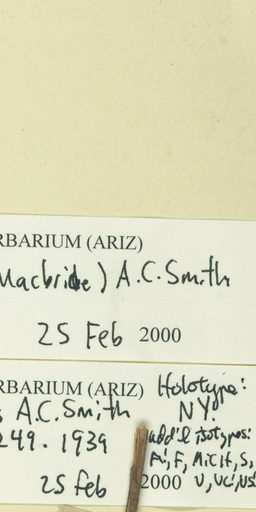 RBARIUM (ARIZ)
Macbride) A.C. Smith
25 Feb 2000
RBARIUM (ARIZ) Holotype:
A.C. Smith NY.
249. 1939 add'l isotypes:
F, MICH, S,
25 Feb 2000 U, UC, US